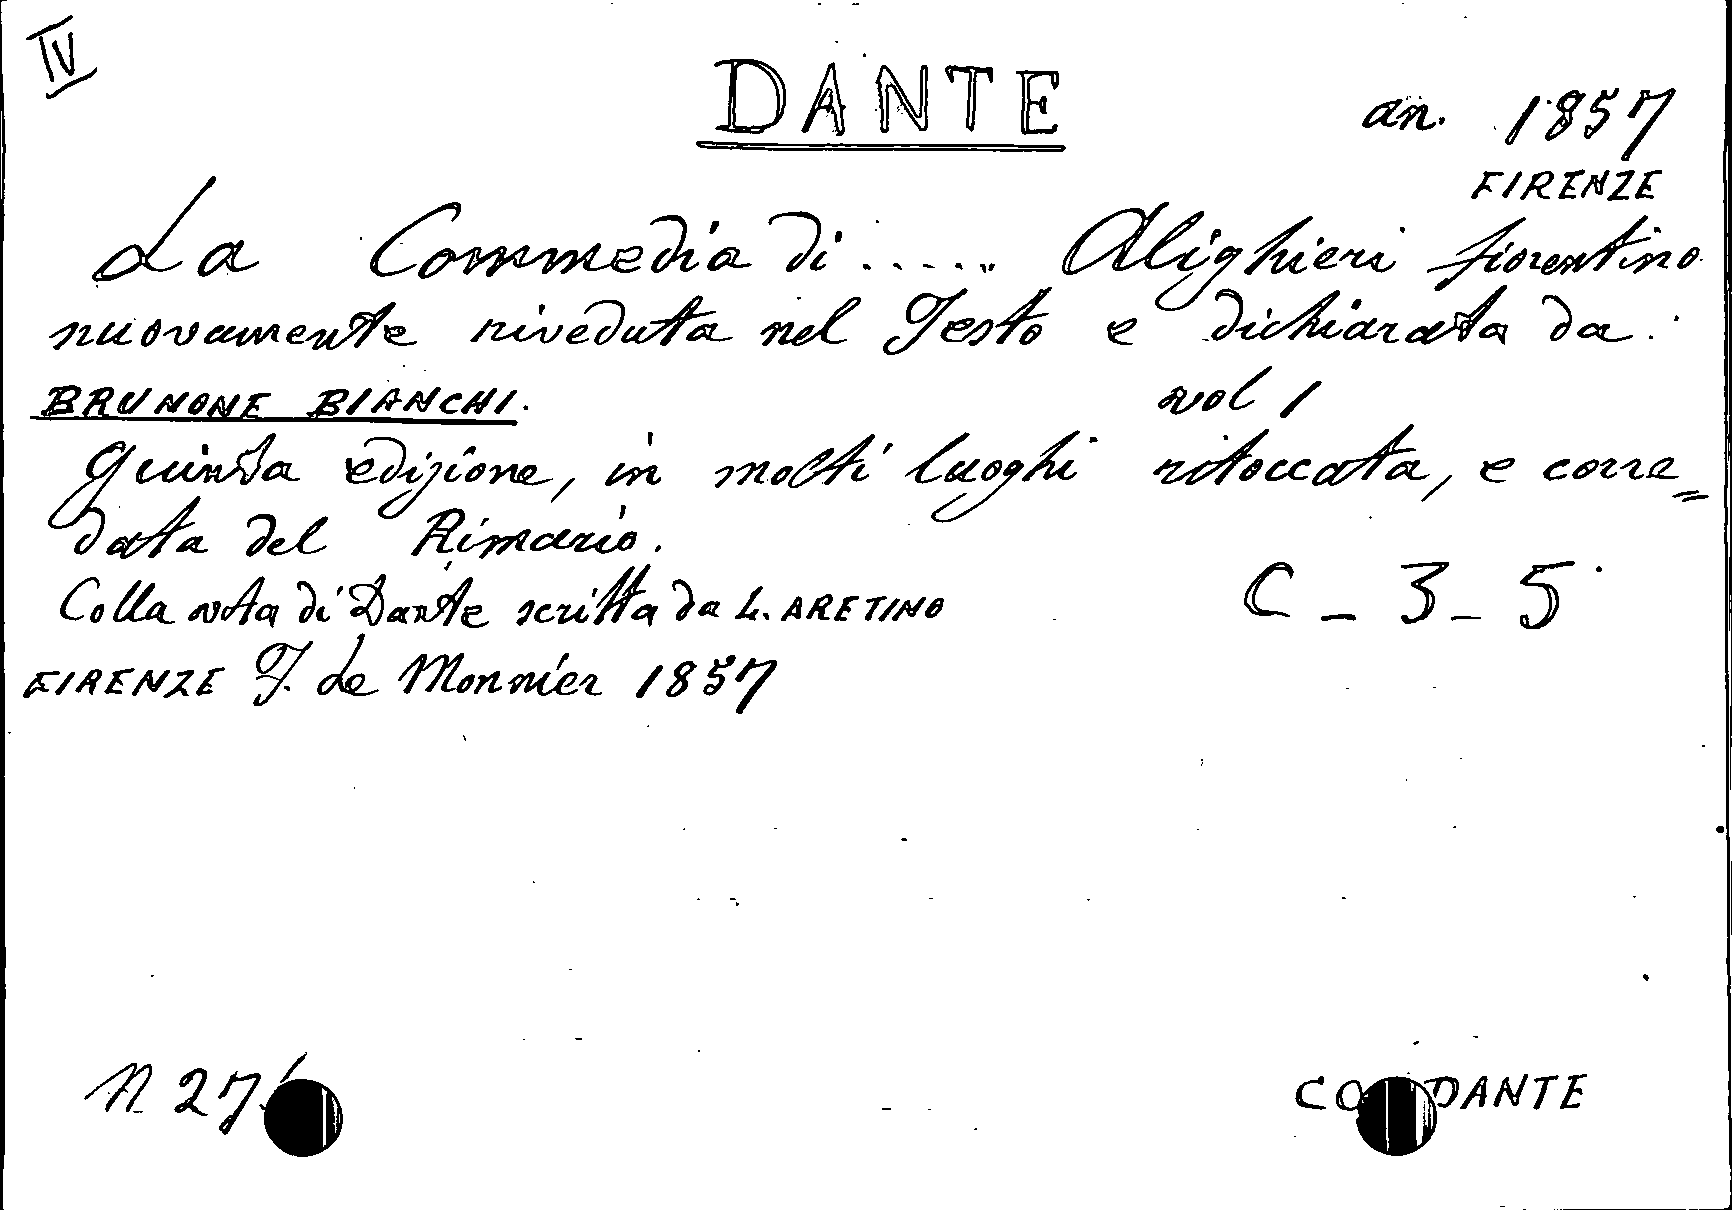 IV
DANTE
an. 1857
FIRENZE
La Commedia di ..... Alighieri fiorentino
nuovamente riveduta nel Testo e dichiarata da:
BRUNONE BIANCHI. vol 1
Quinta edizione, in molti luoghi ritoccata, e corre=
data del Rimario.
Colla vita di Dante scritta da L. ARETINO C - 3 - 5
FIRENZE F. Le Monnier 1857
N 27
CO DANTE